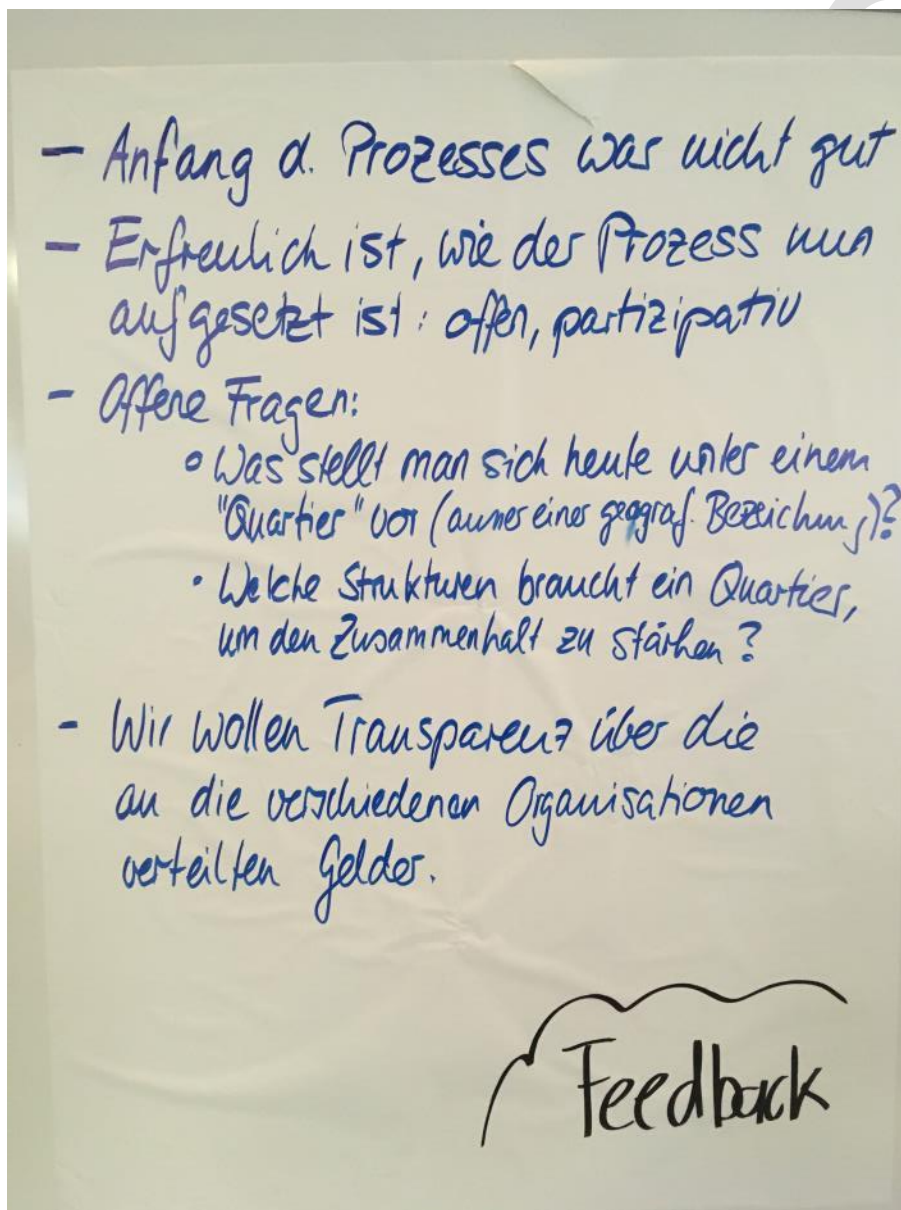 - Anfang d. Prozesses war nicht gut
- Erfreulich ist, wie der Prozess nun
aufgesetzt ist: offen, partizipativ
- Offene Fragen:
• Was stellt man sich heute unter einem
"Quartier" vor (ausser einer geograf. Bezeichung)?
• Welche Strukturen braucht ein Quartier,
um den Zusammenhalt zu stärken?
- Wir wollen Transparenz über die
an die verschiedenen Organisationen
verteilten Gelder.
Feedback